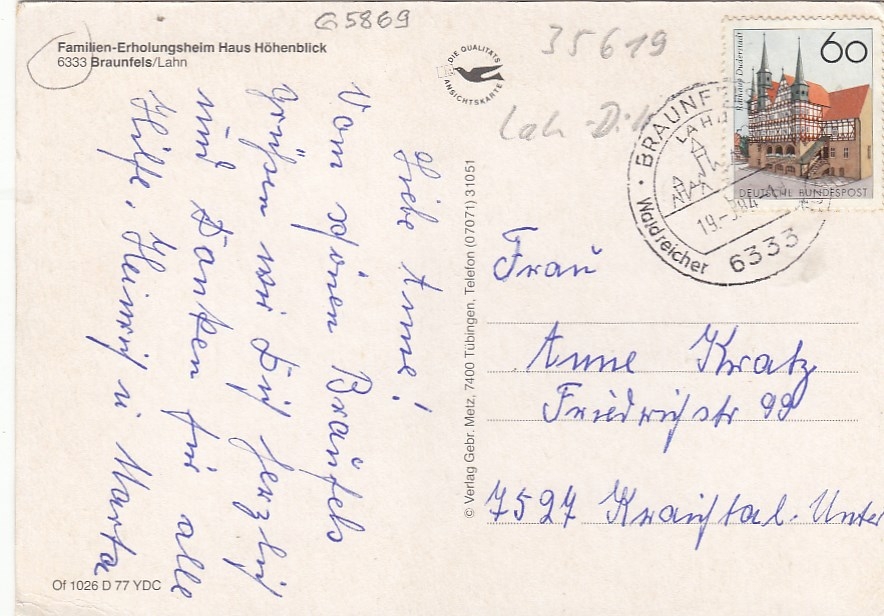 G5869
35619
Familien-Erholungsheim Haus Höhenblick
6333 Braunfels/Lahn
DIE QUALITÄTS
ANSICHTSKARTE
Lah
60
Rathaus Duderstadt
DEUTSCHE BUNDESPOST
BRAUNF
LAHN
19.
84
Waldreicher
6333
Liebe Anne!
Vom schönen Braunfels
grüßen wir Dich herzlich
und danken für alle
Hilfe, Heinrich u Marta
© Verlag Gebr. Metz, 7400 Tübingen, Telefon (07071) 31051
Frau
Anne Kratz
Friedrichstr 99
7527 Kraichtal-Unter
Of 1026 D 77 YDC